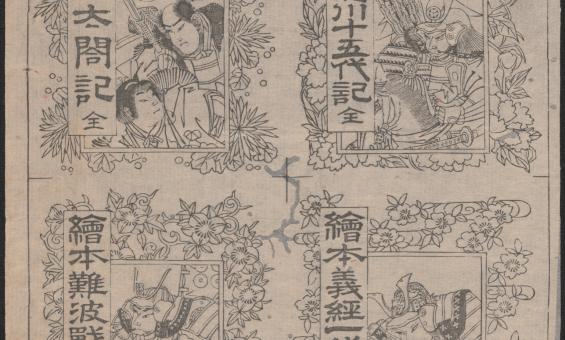 川十五代記 全
太閤記 全
繪本義經一
繪本難波戰